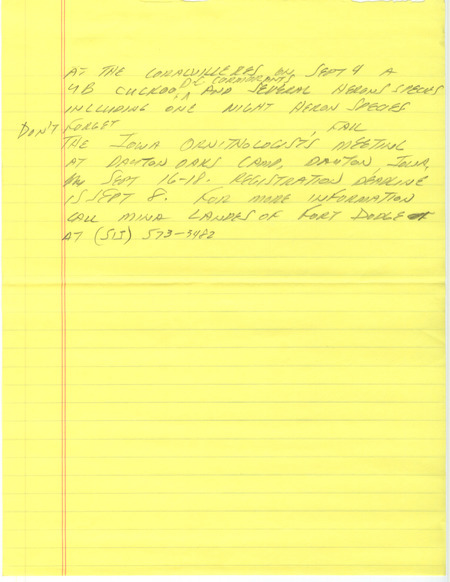 AT THE CORALVILLE RES ON SEPT 4 A
YB CUCKOO, DC CORMORANTS AND SEVERAL HERONS SPECIES
INCLUDING ONE NIGHT HERON SPECIES
DON'T FORGET
THE IOWA ORNITHOLOGIST'S, FALL MEETING
AT DAYTON OAKS CAMP, DAYTON, IOWA,
SEPT 16-18. REGISTRATION DEADLINE
IS SEPT 8. FOR MORE INFORMATION
CALL MINA LANDES OF FORT DODGE
AT (515) 573-3482